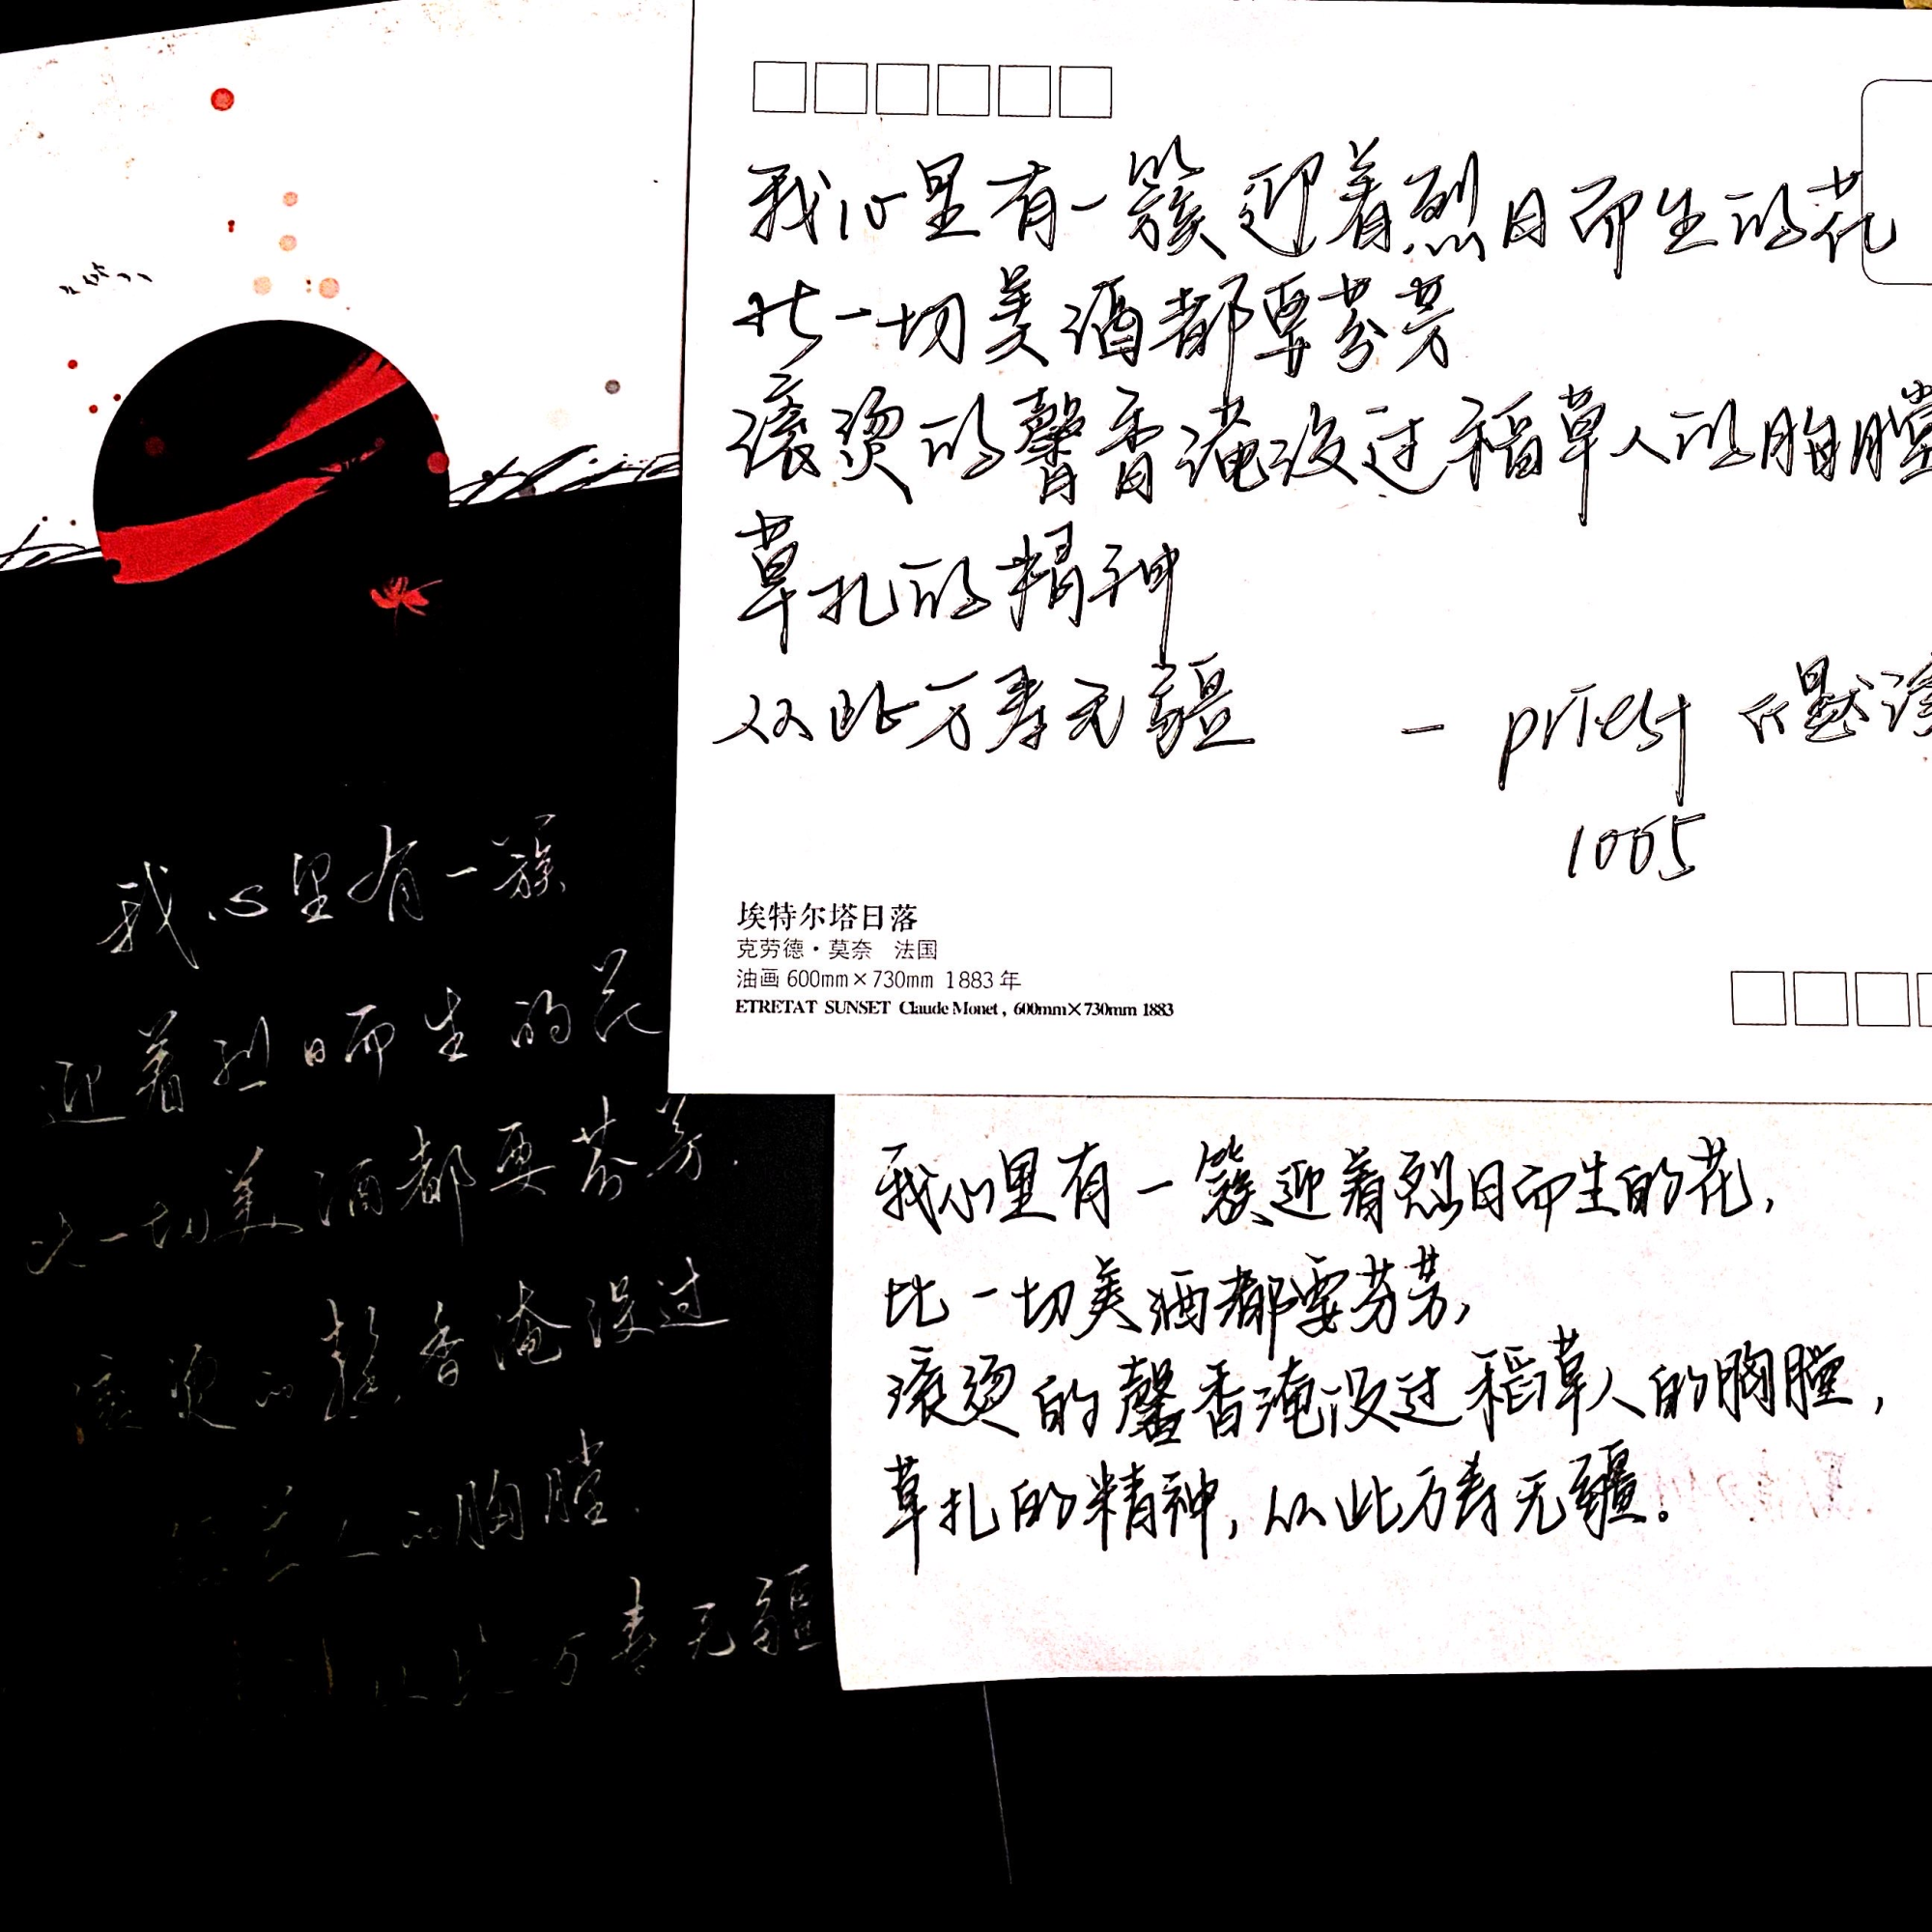 我心里有一簇迎着烈日而生的花
比一切美酒都要芬芳
滚烫的馨香淹没过稻草人的胸膛
草扎的精神
从此万寿无疆 — priest 《默读
1005
埃特尔塔日落
克劳德·莫奈 法国
油画 600mm×730mm 1883年
ETRETAT SUNSET Claude Monet, 600mm×730mm 1883
我心里有一簇
迎着烈日而生的花
比一切美酒都要芬芳.
滚烫的馨香淹没过
草人的胸膛.
从此万寿无疆
我心里有一簇迎着烈日而生的花,
比一切美酒都要芬芳,
滚烫的馨香淹没过稻草人的胸膛,
草扎的精神, 从此万寿无疆。